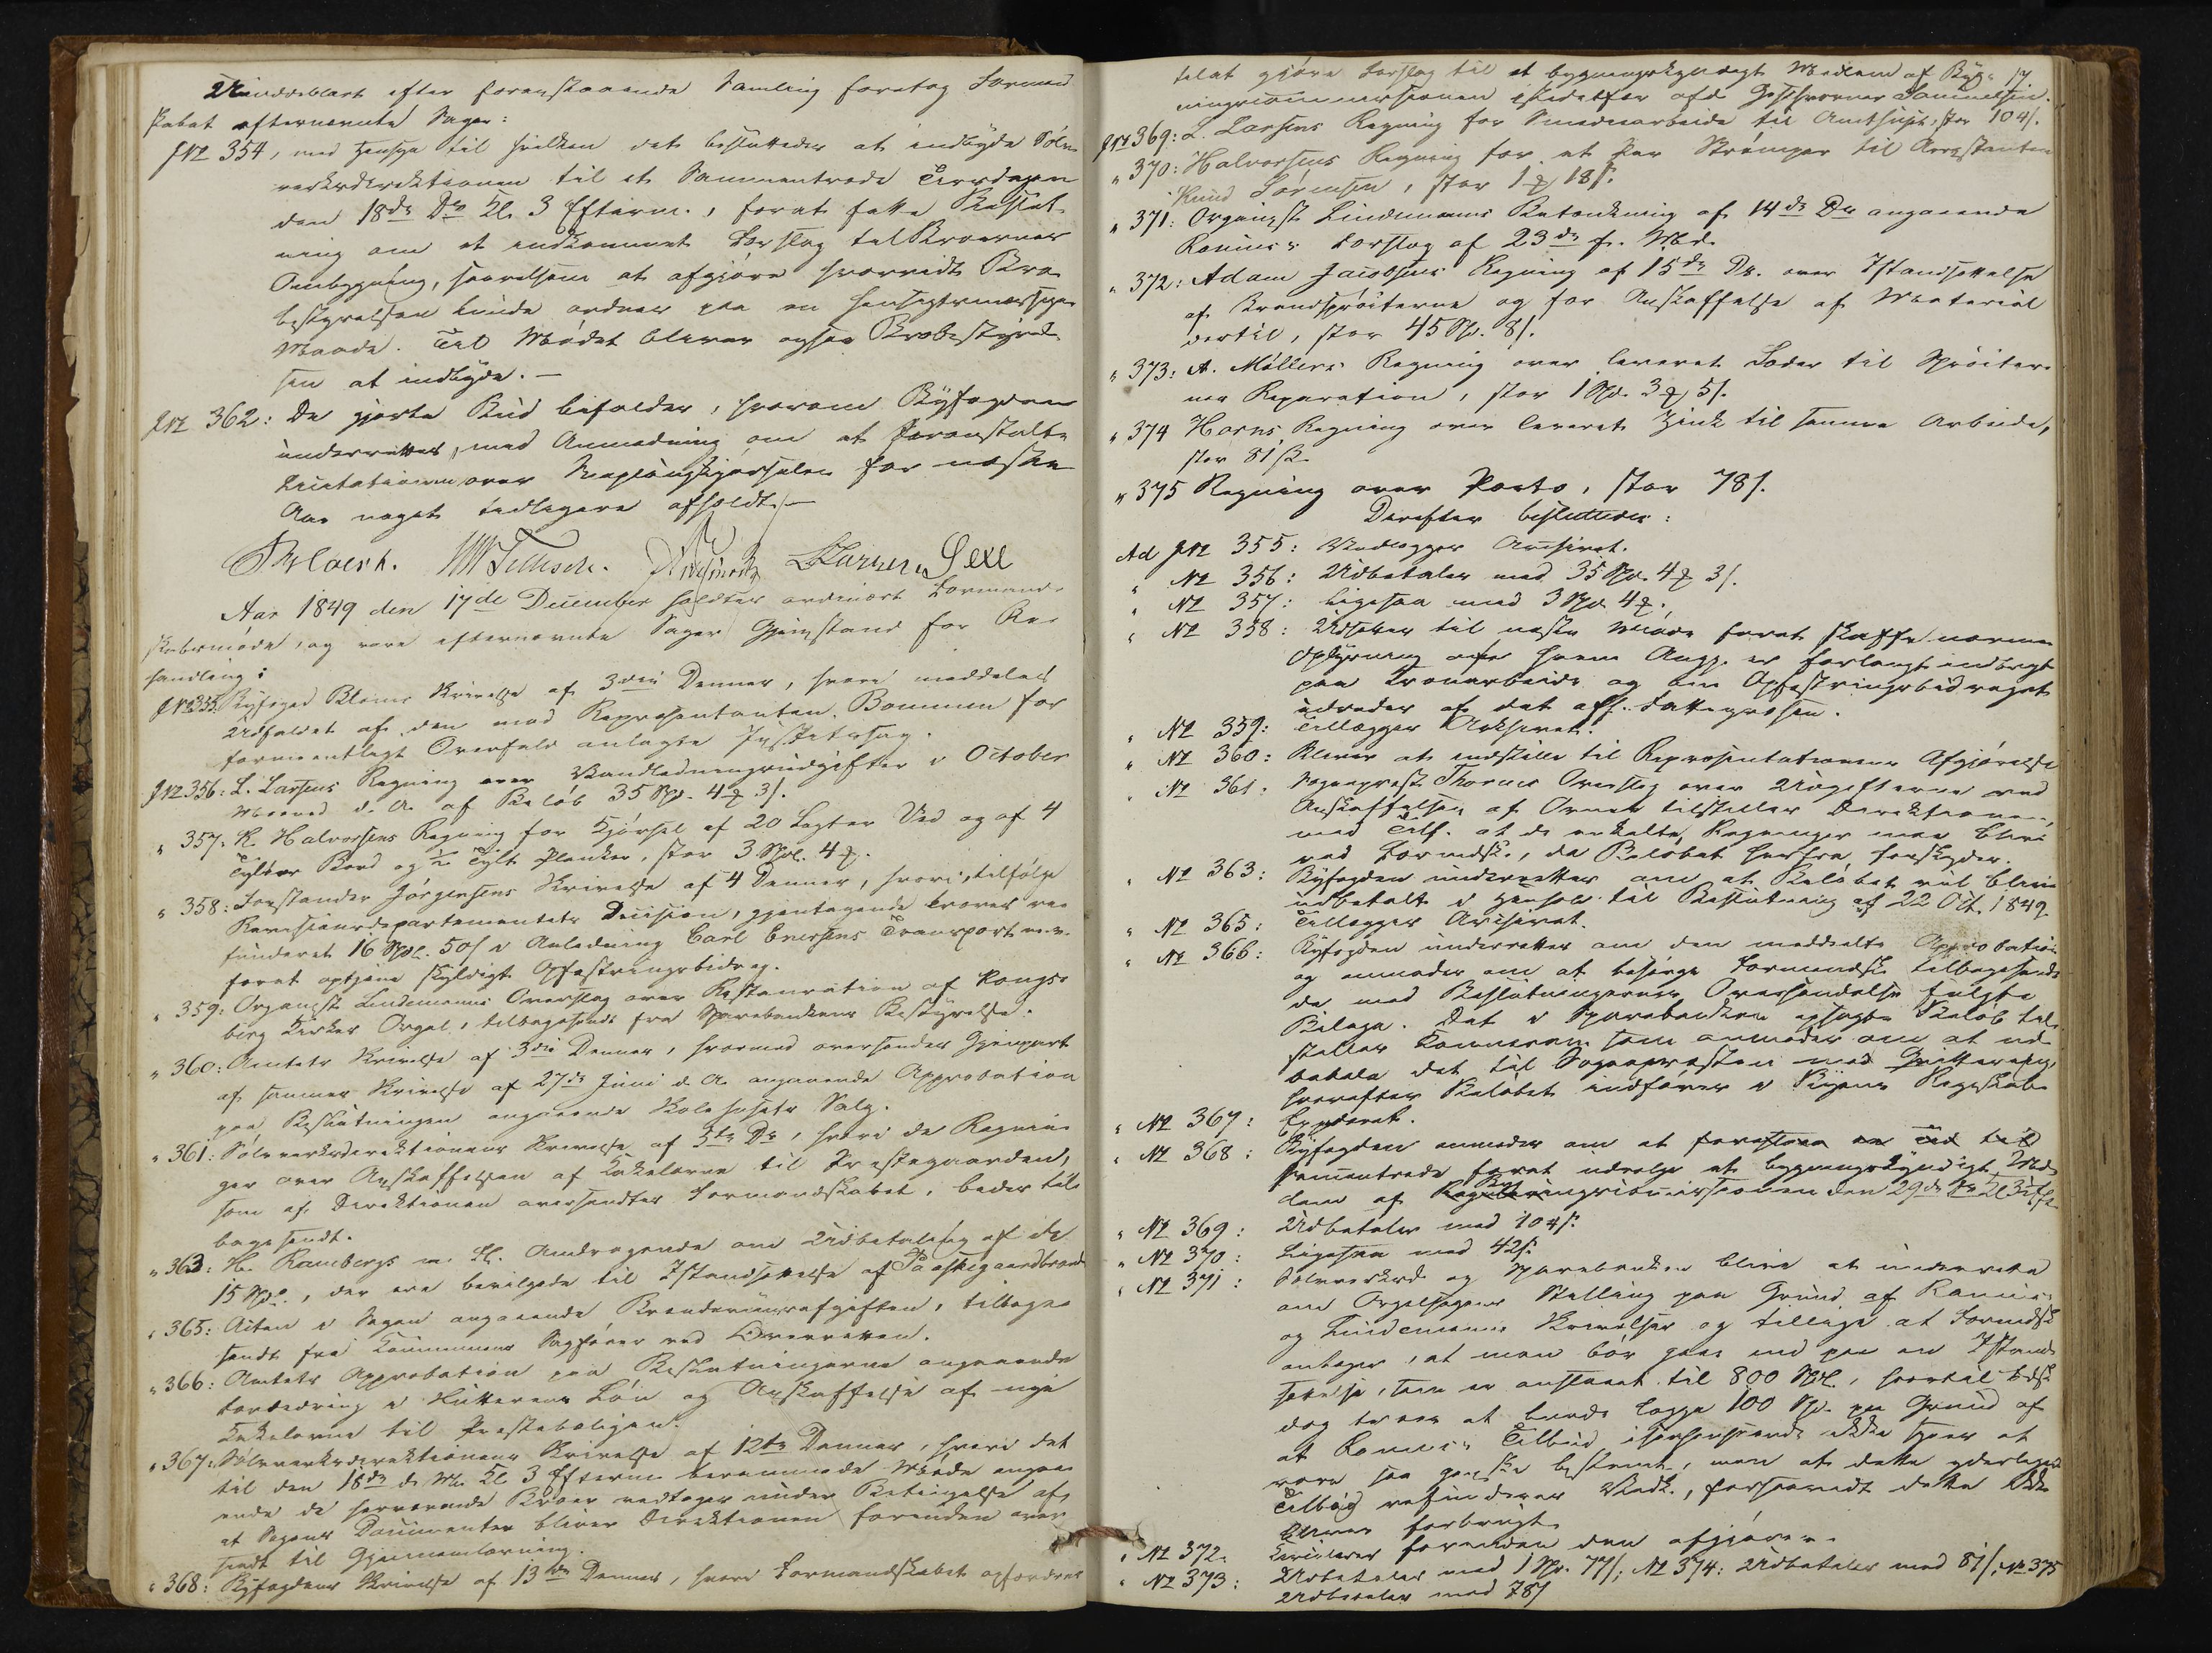 Umiddelbart efter foranstaaende Samling foretog Formand
skabet efternævnte Sager:
JN 354, med Hensyn til hvilken det besluttedes at indbyde Sølv
værksdirektionen til et Sammentræde Tirsdagen
den 18de Ds Kl. 3 Efterm., forat fatte Beslut-
ning om et indkommet Forslag til Broernes
Ombygning, saavelsom at afgjøre hvorvidt Bro
bestyrelsen kunde ordnes paa en hensigtsmæssigere
Maade. Til Mødet bliver ogsaa Brobestyrel-
sen at indbyde.—
JN 362: De gjorte Bud bifaldes, hvorom Byfogden
underrettes, med Anmodning om at foranstalte
Licitationen over for næste
Aar noget tidligere afholdt.—
Aar 1849 den 17de December holdtes ordinært Formand-
skabsmøde, og vare efternævnte Sager Gjenstand for Be-
handling:
JN 355. Byfoged Bloms Skrivelse af 3die Dennes, hvori meddeles
Udfaldet af den mod Repræsentanten Bommen for
formeentligt Overfald anlagte Justitssag.
JN 356: L. Larsens Regning over Vandledningsudgifter i October
Maaned d. A. af Beløb 35 Spd. 4 ₰ 3 s.
" 357. K. Halvorsens Regning for Kjørsel af 20 Læster Ved og af 4
Tylvter Bord og ½ Tylt Planker, stor 3 Spd. 4 ₰.
" 358: Forstander Jørgensens Skrivelse af 4 Dennes, hvori, tilfølge
Revisionsdepartementets Decision, gjentagende kræves re-
funderet 16 Spd. 50 s i Anledning Carl Eversens Transport m.v.
forat optjene skyldigt Opfostringsbidrag.
" 359: Organist Lindemanns Overslag over Restauration af Kongs-
berg Kirkes Orgel, tilbagesendt fra Sparebankens Bestyrelse.
" 360: Amtets Skrivelse af 3die Dennes, hvormed oversendes Gjenpart
af sammes Skrivelse af 27de Juni d. A. angaaende Approbation
paa Beslutningen angaaende Skolehusets Salg.
" 361: Sølvværksdirektionens Skrivelse af 5te Ds, hvori de Regnin-
ger over Anskaffelsen af Kakelovne til Præstegaarden,
som af Direktionen oversendtes Formandskabet, bedes til-
bagesendt.
" 363: H. Rambergs m. Fl. Andragende om Udbetaling af de
15 Spd., der ere bevilgede til Istandsættelse af
" 365: Akten i Sagen angaaende Brændeviinsafgiften, tilbage-
sendt fra Kommunens Sagfører ved Overretten.
" 366: Amtets Approbation paa Beslutningerne angaaende
Forandring i Lön og Anskaffelse af nye
Kakelovne til Præsteboligen.
" 367: Sølvværksdirektionens Skrivelse af 12te Dennes, hvori det
til den 18de d. M. Kl. 3 Efterm. berammede Møde angaa-
ende de herværende Broer vedtages under Betingelse af,
at Sagens Documenter bliver Direktionen forinden over-
sendt til Gjennemlæsning.
" 368: Byfogdens Skrivelse af 13de Dennes, hvori Formandskabet opfordres
17
til at gjøre Forslag til et bygningskyndigt Medlem af Byg-
ningscommissionen istedetfor afd. Geschworner Samuelsen.
JN 369: L. Larsens Regning for Smedearbeide til Amtshuset, stor 104 s.
" 370: Halvorsens Regning for et Par Strømper til Arrestanten
Knud Sørensen, stor 1 ₰ 18 s.
" 371: Organist Lindemanns Betænkning af 14de Ds angaaende
Forslag af 23de f. Md.
" 372: Adam Jacobsens Regning af 15de Ds. over Istandsættelse
af Brandsprøiterne og for Anskaffelse af Material
dertil, stor 45 Spd. 8 s.
" 373: A. Møllers Regning over leveret Læder til Sprøiter-
nes Reparation, stor 1 Spd. 3 ₰ 5 s.
" 374 Horns Regning over leveret Zink til samme Arbeide,
stor 81 s.
" 375 Regning over Porto, stor 78 s.
Derefter besluttedes:
Ad JN 355: Vedlægges Archivet.
" N 356: Udbetales med 35 Spd. 4 ₰ 3 s.
" N 357: Ligesaa med 3 Spd. 4 ₰.
" N 358: Udsættes til næste Møde forat skaffe nærmere
Oplysning
paa Tvangsarbeide og om Opfostringsbidraget
udredes af det
" N 359: Tillægges Archivet.
" N 360: Bliver at indstille til Repræsentationens Afgjørelse
" N 361: Sognepræst Overslag over Udgifterne ved
Anskaffelsen af Ovnene tilstilles Direktionen,
med Tilf. at de enkelte Regninger maa blive
ved Formdsk., da Beløbet herfra forskydes.
" N 363: Byfogden underrettes om at Beløbet vil blive
udbetalt i Henhold til Beslutning af 22 Oct. 1849
" N 365: Tillægges Archivet.
" N 366: Byfogden underrettes om den meddeelte Approbation
og anmodes om at besørge Formandsk. tilbagesendt
de med Beslutningernes Oversendelse fulgte
Bilage. Det i Sparebanken opsagte Beløb til-
stilles Kæmneren som anmodes om at ud-
betale det til Sognepræsten mod Qvittering,
hvorefter Beløbet indføres i Byens Regnskab.
" N 367:
" N 368: Byfogden anmodes om at
sammentræde forat udvælge et bygningskyndigt Med
lem af den 29de Ds Kl 3
" N 369: Udbetales med 104 s.
" N 370: Ligesaa med 42 s.
" N 371: Sølvværksd. og Sparebanken bliver at underrette
om Orgelsagens Stilling paa Grund af
og Lindemanns Skrivelser og tillige at Formdsk
antager, at man bør gaae ind paa en Istand-
sættelse, som er anslaaet til 800 Spd., hvortil
dog at burde lægge 100 Spd. paa Grund af
at Tilbud ikke synes at
være saa ganske bestemt, men at dette yderligere
Tillæg refunderes Vedk., forsaavidt dette ikke
bliver forbrugt.
" N 372. Cirkulerer forinden den afgjøres.
" N 373: Udbetales med 1 Spd. 77 s; N 374: Udbetales med 81 s; N 375
Udbetales med 78 s